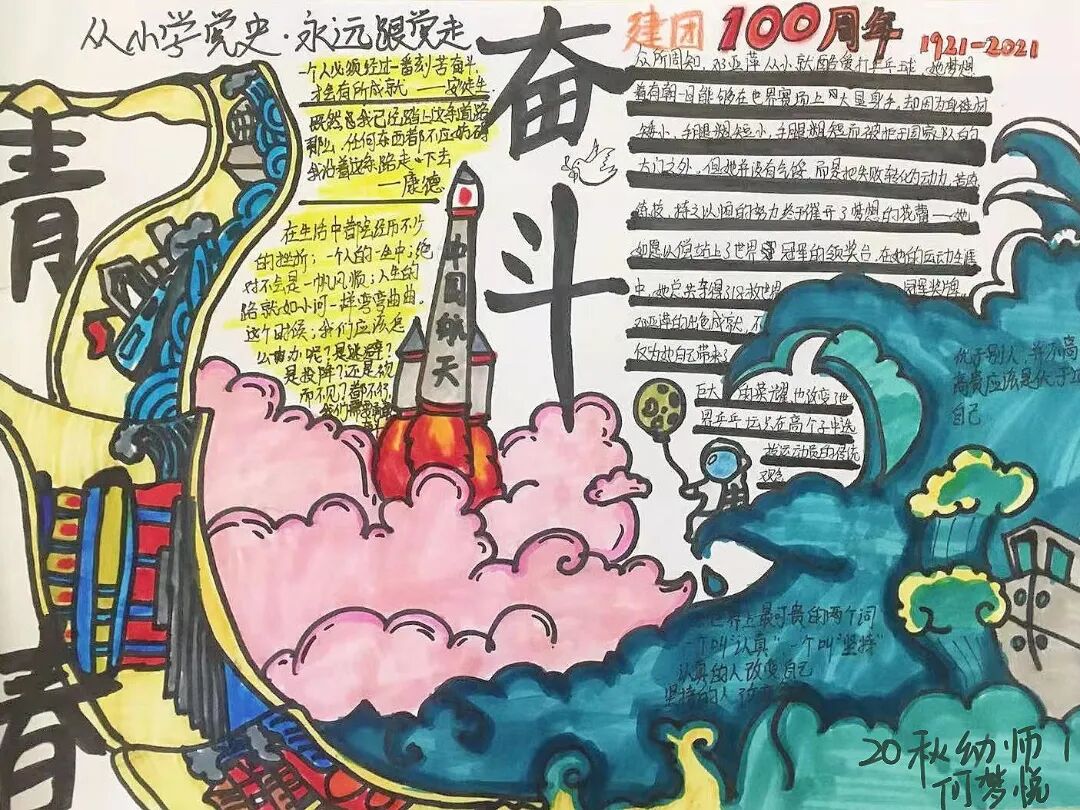 从小学党史·永远跟党走
建团100周年
1921-2021
青春
奋斗
一个人必须经过一番刻苦奋斗,
才会有所成就 ——安徒生
既然我已经踏上这条道路
那么,任何东西都不应妨碍
我沿着这条路走下去
——康德
在生活中都会经历不少
的挫折;一个人的一生中,绝
对不会是一帆风顺;人生的
路就如小河一样弯弯曲曲。
这个时候,我们应该怎
么办呢?是逃避?
是投降?还是视
而不见?都不行,
中国航天
众所周知,邓亚萍从小就酷爱打乒乓球,她梦想
着有朝一日能够在世界赛场上大显身手,却因为身材
矮小,手腿粗短而被拒于国家队的
大门之外。但她并没有气馁,而是把失败转化为动力,苦练
持之以恒的努力终于催开了梦想的花蕾——她
如愿以偿站上了世界冠军的领奖台。在她的运动生涯
中,她总共夺得了18枚世界冠军奖牌。
邓亚萍的出色成就,不
仅为她自己带来了
巨大的荣耀,也改变了世
界乒乓坛只在高个子中选
拔运动员的传统
观念
优于别人,并不高
高贵应该是优于
自己
世界上最可贵的两个词
一个叫“认真”一个叫“坚持”
认真的人改变自己
坚持的人
20秋幼师1
何梦悦